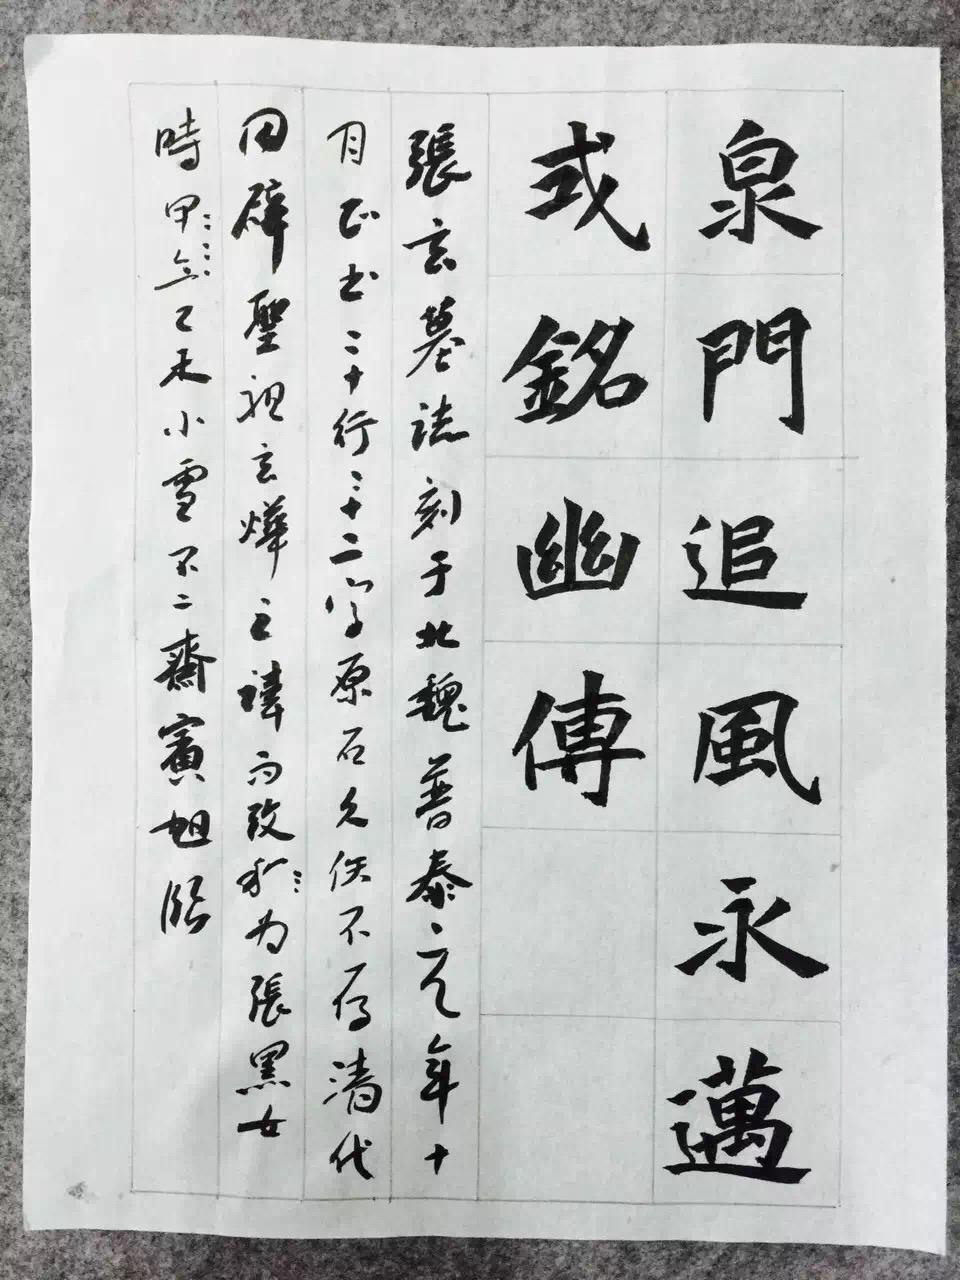 泉門追風永邁
式銘幽傳
張玄墓誌刻于北魏普泰元年十
月正书二十行二十二字原石久佚不存清代
因辟聖祖玄燁之諱而改称为張黑女
時甲午乙未小雪不二齋寅旭临